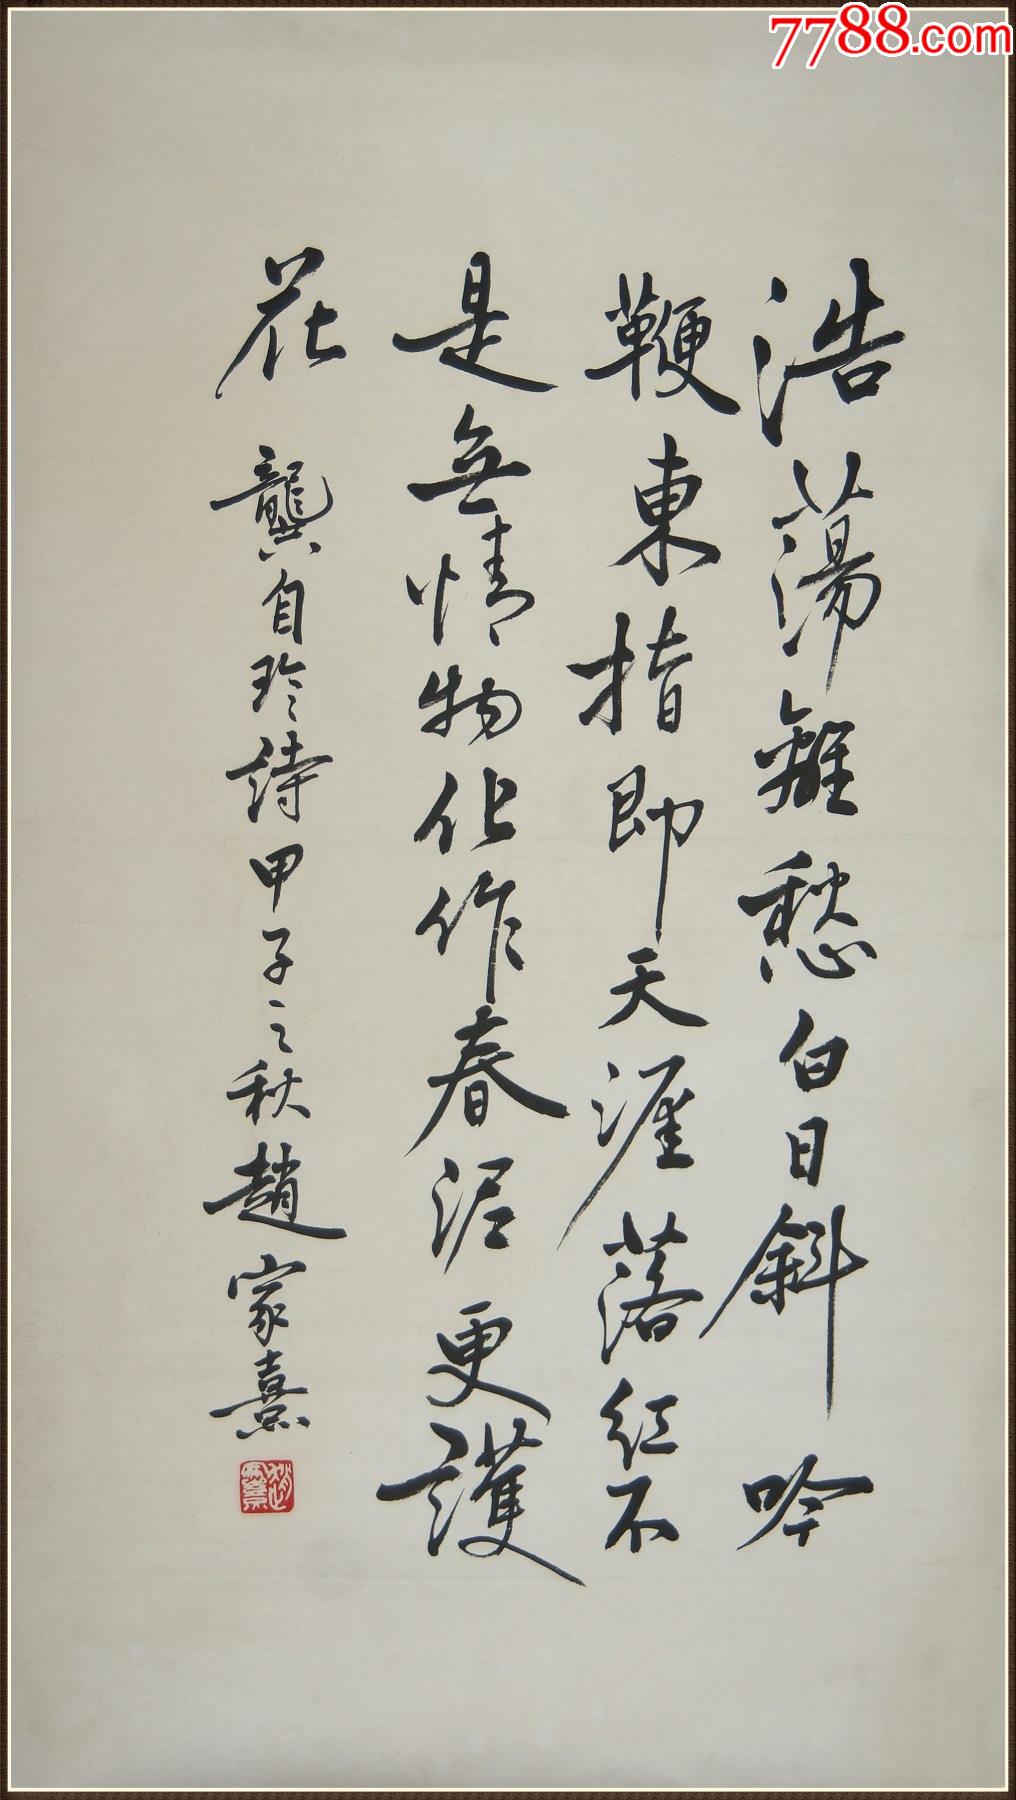 7788.com
浩蕩離愁白日斜吟
鞭東指即天涯落红不
是無情物化作春泥更護
花 龔自珍詩甲子之秋趙家熹